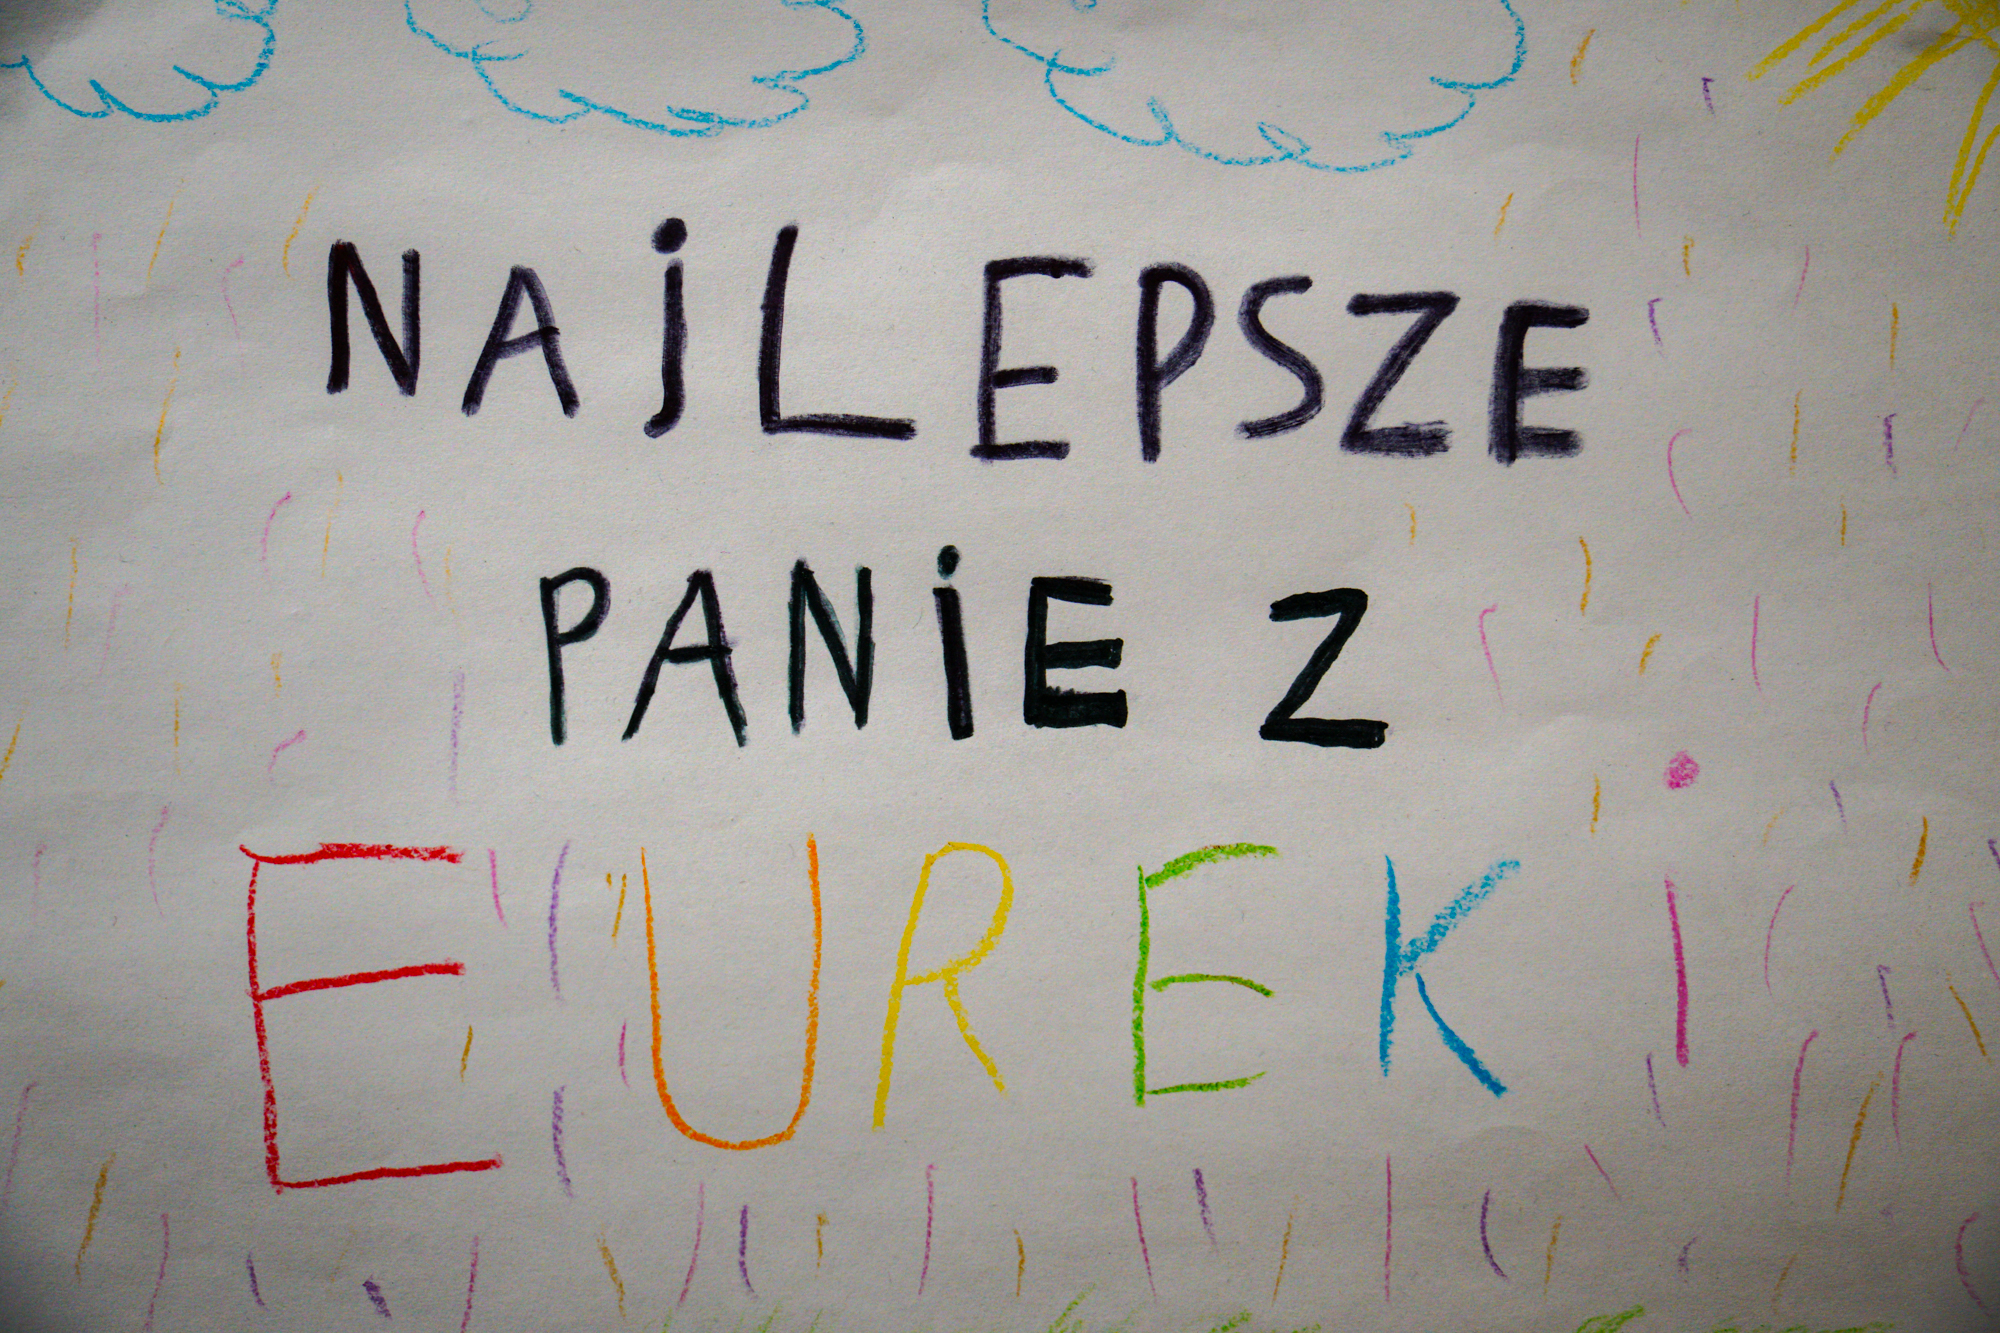 NAjLEPSZE
PANiE Z
EUREKi